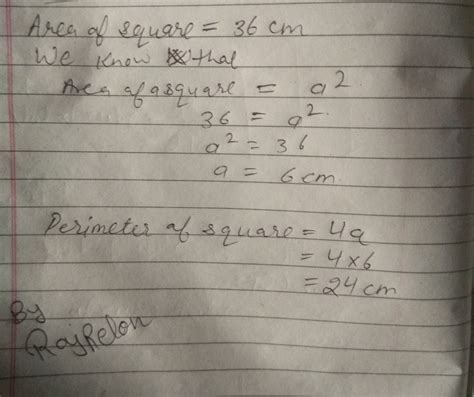 Area of square = 36 cm
We know that
Area of a square = a²
36 = a²
a² = 36
a = 6 cm
Perimeter of square = 4a
= 4×6
= 24 cm
By
Raj Relon